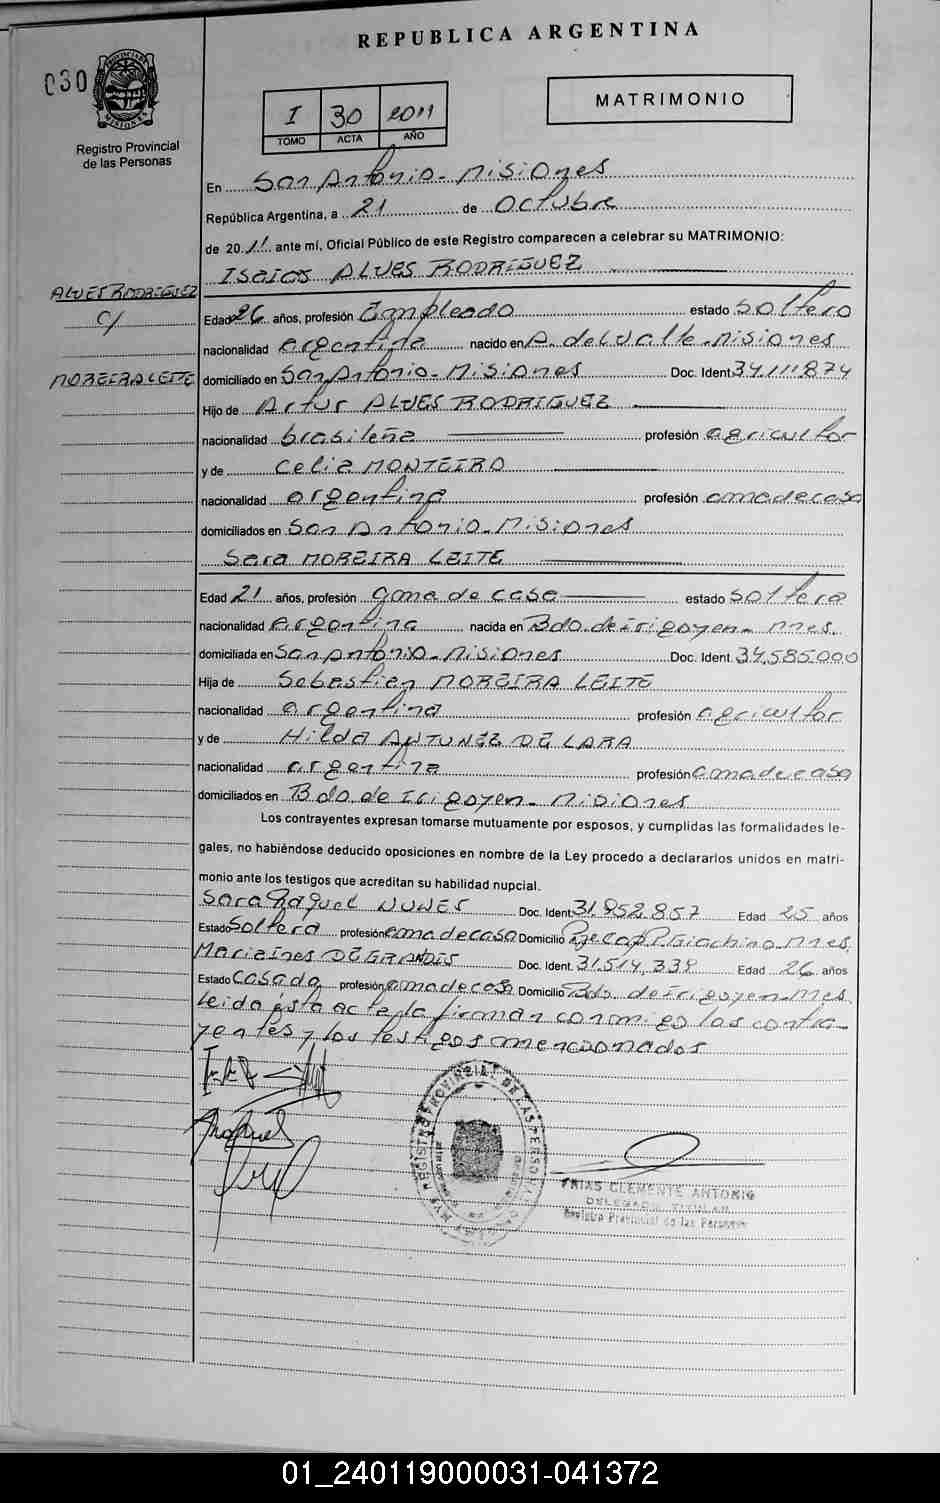 REPUBLICA ARGENTINA
030
PROVINCIA DE MISIONES
Registro Provincial
de las Personas
I 30 2011
TOMO ACTA AÑO
MATRIMONIO
En San Antonio - Misiones
República Argentina, a 21 de Octubre
de 2011 ante mí, Oficial Público de este Registro comparecen a celebrar su MATRIMONIO:
Isaias ALVES RODRIGUEZ
ALVES RODRIGUEZ
c/
MOREIRA LEITE
Edad 26 años, profesión Empleado estado soltero
nacionalidad argentina nacido en A. del Valle - Misiones
domiciliado en San Antonio - Misiones Doc. Ident. 34.111.874
Hijo de Artur ALVES RODRIGUEZ
nacionalidad brasileña profesión agricultor
y de Celia MONTEIRO
nacionalidad argentina profesión ama de casa
domiciliados en San Antonio - Misiones
Sara MOREIRA LEITE
Edad 21 años, profesión ama de casa estado soltera
nacionalidad Argentina nacida en Bdo. de Irigoyen - Mnes.
domiciliada en San Antonio - Misiones Doc. Ident. 34.585.000
Hija de Sebastian MOREIRA LEITE
nacionalidad argentina profesión agricultor
y de Hilda ANTUNEZ DE LARA
nacionalidad argentina profesión ama de casa
domiciliados en Bdo. de Irigoyen - Misiones
Los contrayentes expresan tomarse mutuamente por esposos, y cumplidas las formalidades le-
gales, no habiéndose deducido oposiciones en nombre de la Ley procedo a declararlos unidos en matri-
monio ante los testigos que acreditan su habilidad nupcial.
Sara Raquel NUNES Doc. Ident. 31.952.857 Edad 25 años
Estado Soltera profesión ama de casa Domicilio Pje Cap P. Giachino - Mnes.
Maria Ines DE GRANDIS Doc. Ident. 31.514.339 Edad 26 años
Estado Casada profesión ama de casa Domicilio Bdo. de Irigoyen - Mnes
Leida ésta acta la firman conmigo los contra-
yentes y los testigos mencionados
REGISTRO PROVINCIAL DE LAS PERSONAS
FRIAS CLEMENTE ANTONIO
DELEGADO TITULAR
Registro Provincial de las Personas
01_240119000031-041372